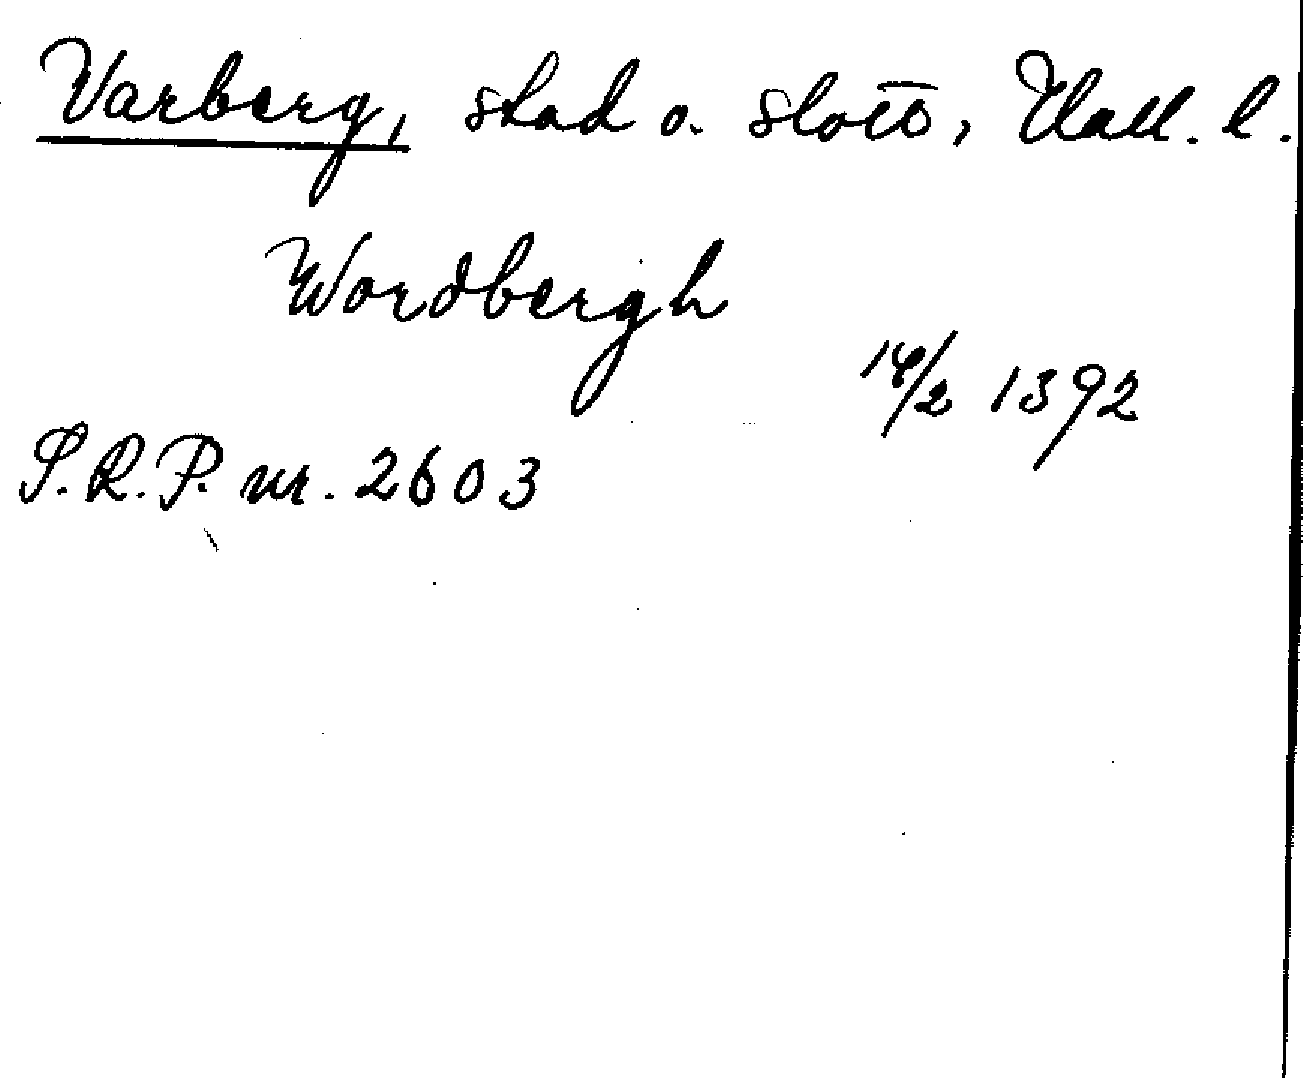 Varberg, stad o. slott, Hall. l.
Wordbergh
14/2 1392
S.R.P. nr. 2603